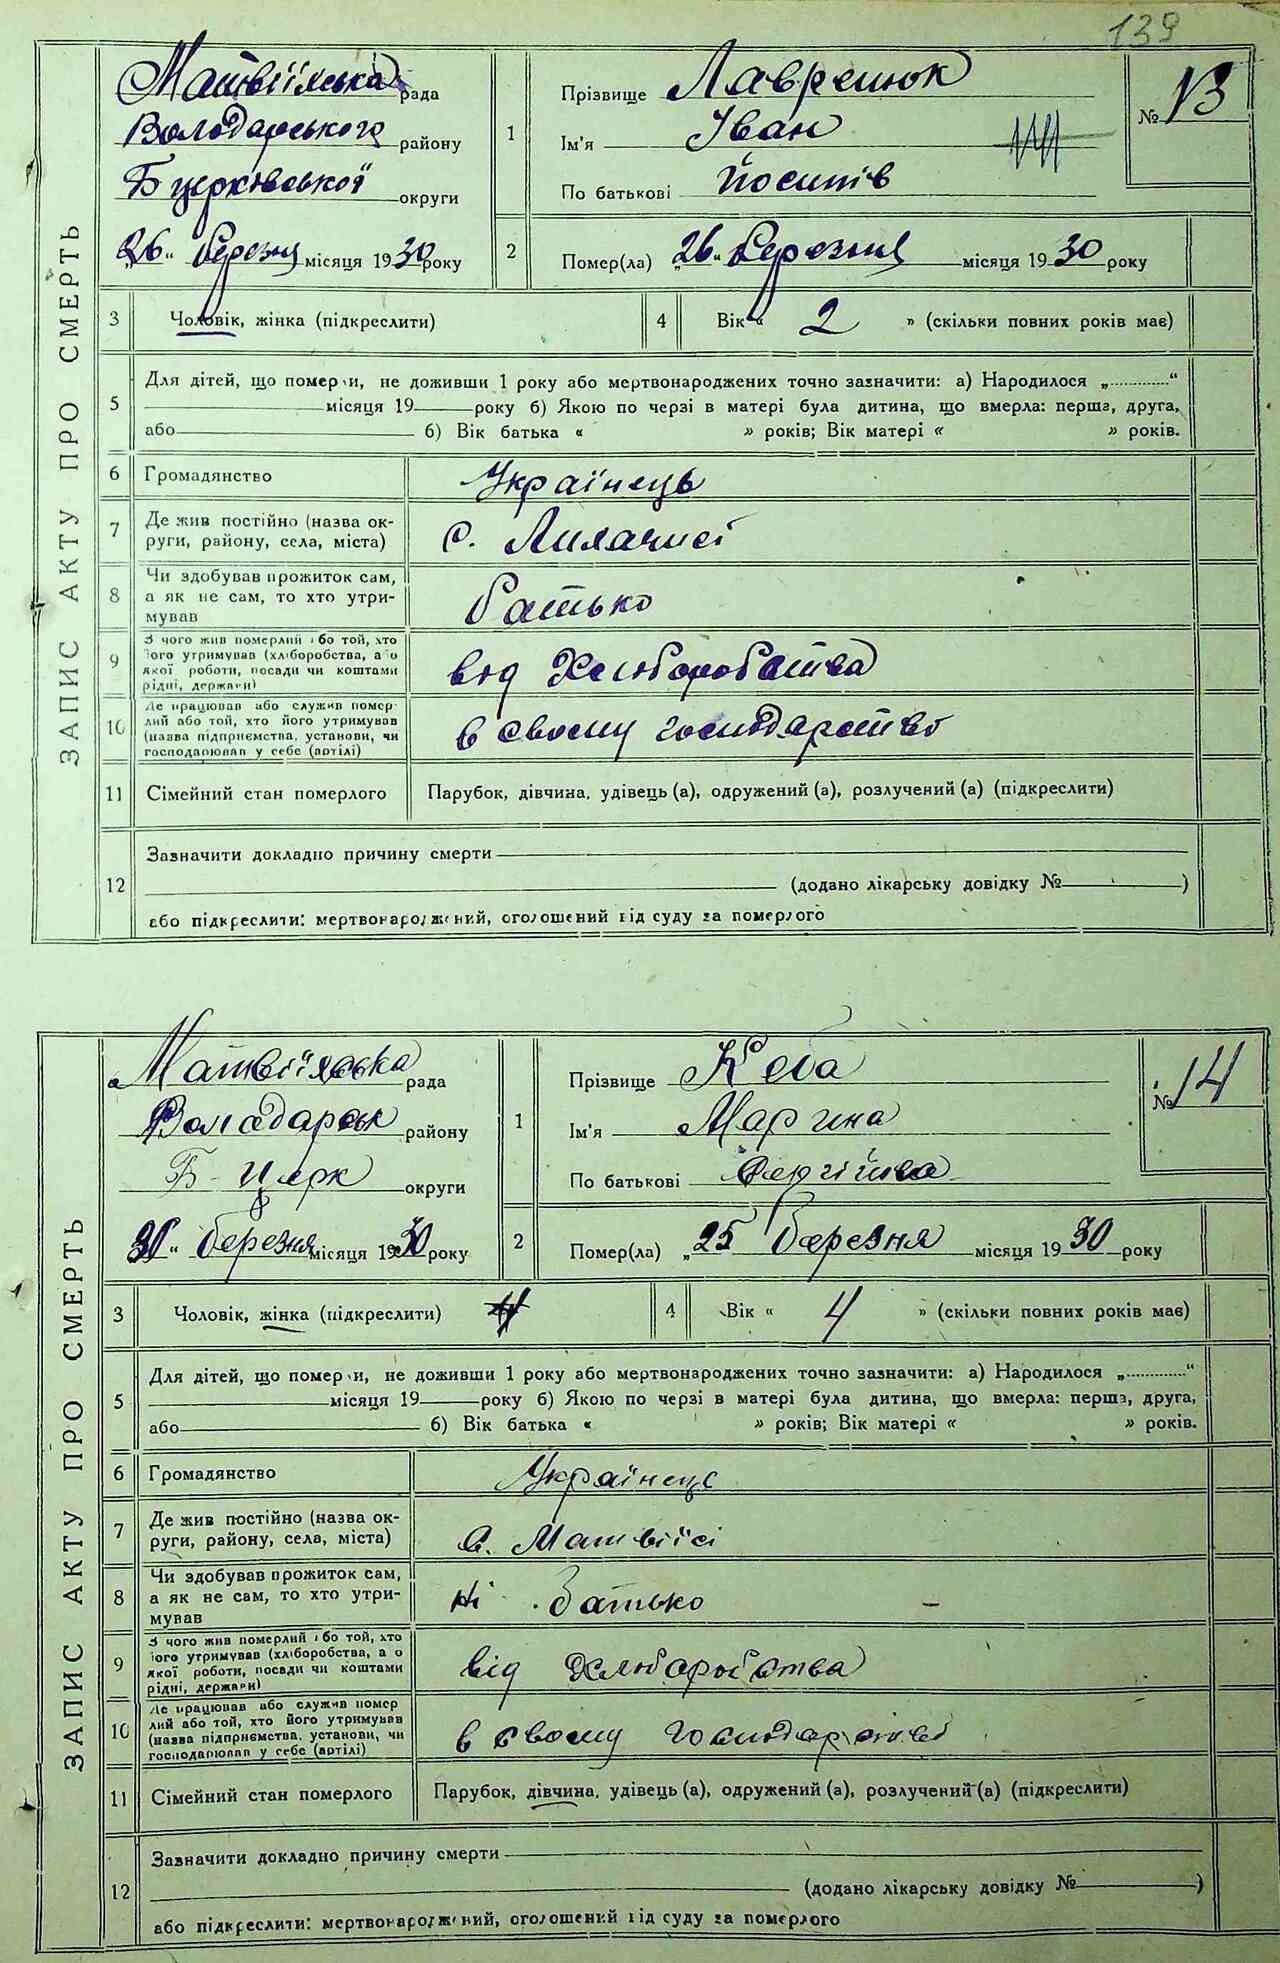 139
ЗАПИС АКТУ ПРО СМЕРТЬ
Матвіїхська рада
Володарського району
Б церківської округи
„26“ березня місяця 1930 року
1
Прізвище Лавренюк
Ім'я Іван
По батькові Йосипів
№ 13
2
Помер(ла) „26“ березня місяця 1930 року
3 Чоловік, жінка (підкреслити)
4 Вік « 2 » (скільки повних років має)
5
Для дітей, що померли, не доживши 1 року або мертвонароджених точно зазначити: а) Народилося „............“
місяця 19 року б) Якою по черзі в матері була дитина, що вмерла: перша, друга,
або б) Вік батька « » років; Вік матері « » років.
6 Громадянство Українець
7
Де жив постійно (назва ок-
руги, району, села, міста)
с.
8
Чи здобував прожиток сам,
а як не сам, то хто утри-
мував
батько
9
З чого жив померлий або той, хто
його утримував (хліборобства, або
якої роботи, посади чи коштами
рідні, держави)
вид Хліборобства
10
Де працював або служив помер-
лий або той, хто його утримував
(назва підприємства, установи, чи
господарював у себе (артілі)
в своєму господарстві
11 Сімейний стан померлого Парубок, дівчина, удівець (а), одружений (а), розлучений (а) (підкреслити)
12
Зазначити докладно причину смерти
(додано лікарську довідку № )
або підкреслити: мертвонароджений, оголошений від суду за померлого
ЗАПИС АКТУ ПРО СМЕРТЬ
Матвіїхська рада
Володарськ району
Б-Церк округи
„30“ березня місяця 1930 року
1
Прізвище Кеба
Ім'я Марина
По батькові
№ 14
2
Помер(ла) „25 березня місяця 1930 року
3 Чоловік, жінка (підкреслити) 4
4 Вік « 4 » (скільки повних років має)
5
Для дітей, що померли, не доживши 1 року або мертвонароджених точно зазначити: а) Народилося „............“
місяця 19 року б) Якою по черзі в матері була дитина, що вмерла: перша, друга,
або б) Вік батька « » років; Вік матері « » років.
6 Громадянство Українець
7
Де жив постійно (назва ок-
руги, району, села, міста)
с. Матвіїсі
8
Чи здобував прожиток сам,
а як не сам, то хто утри-
мував
Ні. Батько
9
З чого жив померлий або той, хто
його утримував (хліборобства, або
якої роботи, посади чи коштами
рідні, держави)
від Хліборобства
10
Де працював або служив помер
лий або той, хто його утримував
(назва підприємства, установи, чи
господарював у себе (артілі)
в своєму господарстві
11 Сімейний стан померлого Парубок, дівчина, удівець (а), одружений (а), розлучений (а) (підкреслити)
12
Зазначити докладно причину смерти
(додано лікарську довідку № )
або підкреслити: мертвонароджений, оголошений від суду за померлого